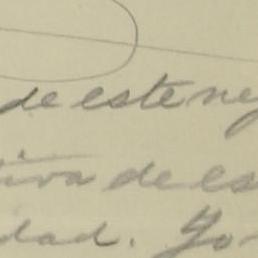 de este neg
tiva de es
dad. Yo